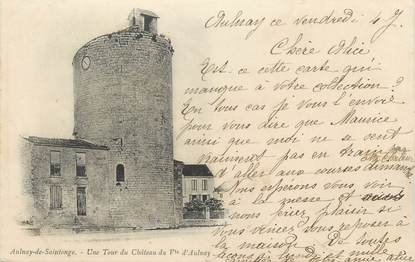 Aulnay ce Vendredi 4 J
Chère Alice
Est ce cette carte qui
manque à votre collection?
En tous cas je vous l'envoie
pour vous dire que Maurice
ainsi que moi ne se sent
vraiment pas en train
d'aller aux courses demain
Nous espérons vous voir
à la messe et
nous faire plaisir si
vous venez vous reposer à
la maison De toutes
Aulnay-de-Saintonge. - Une Tour du Château du Vte d'Aulnay